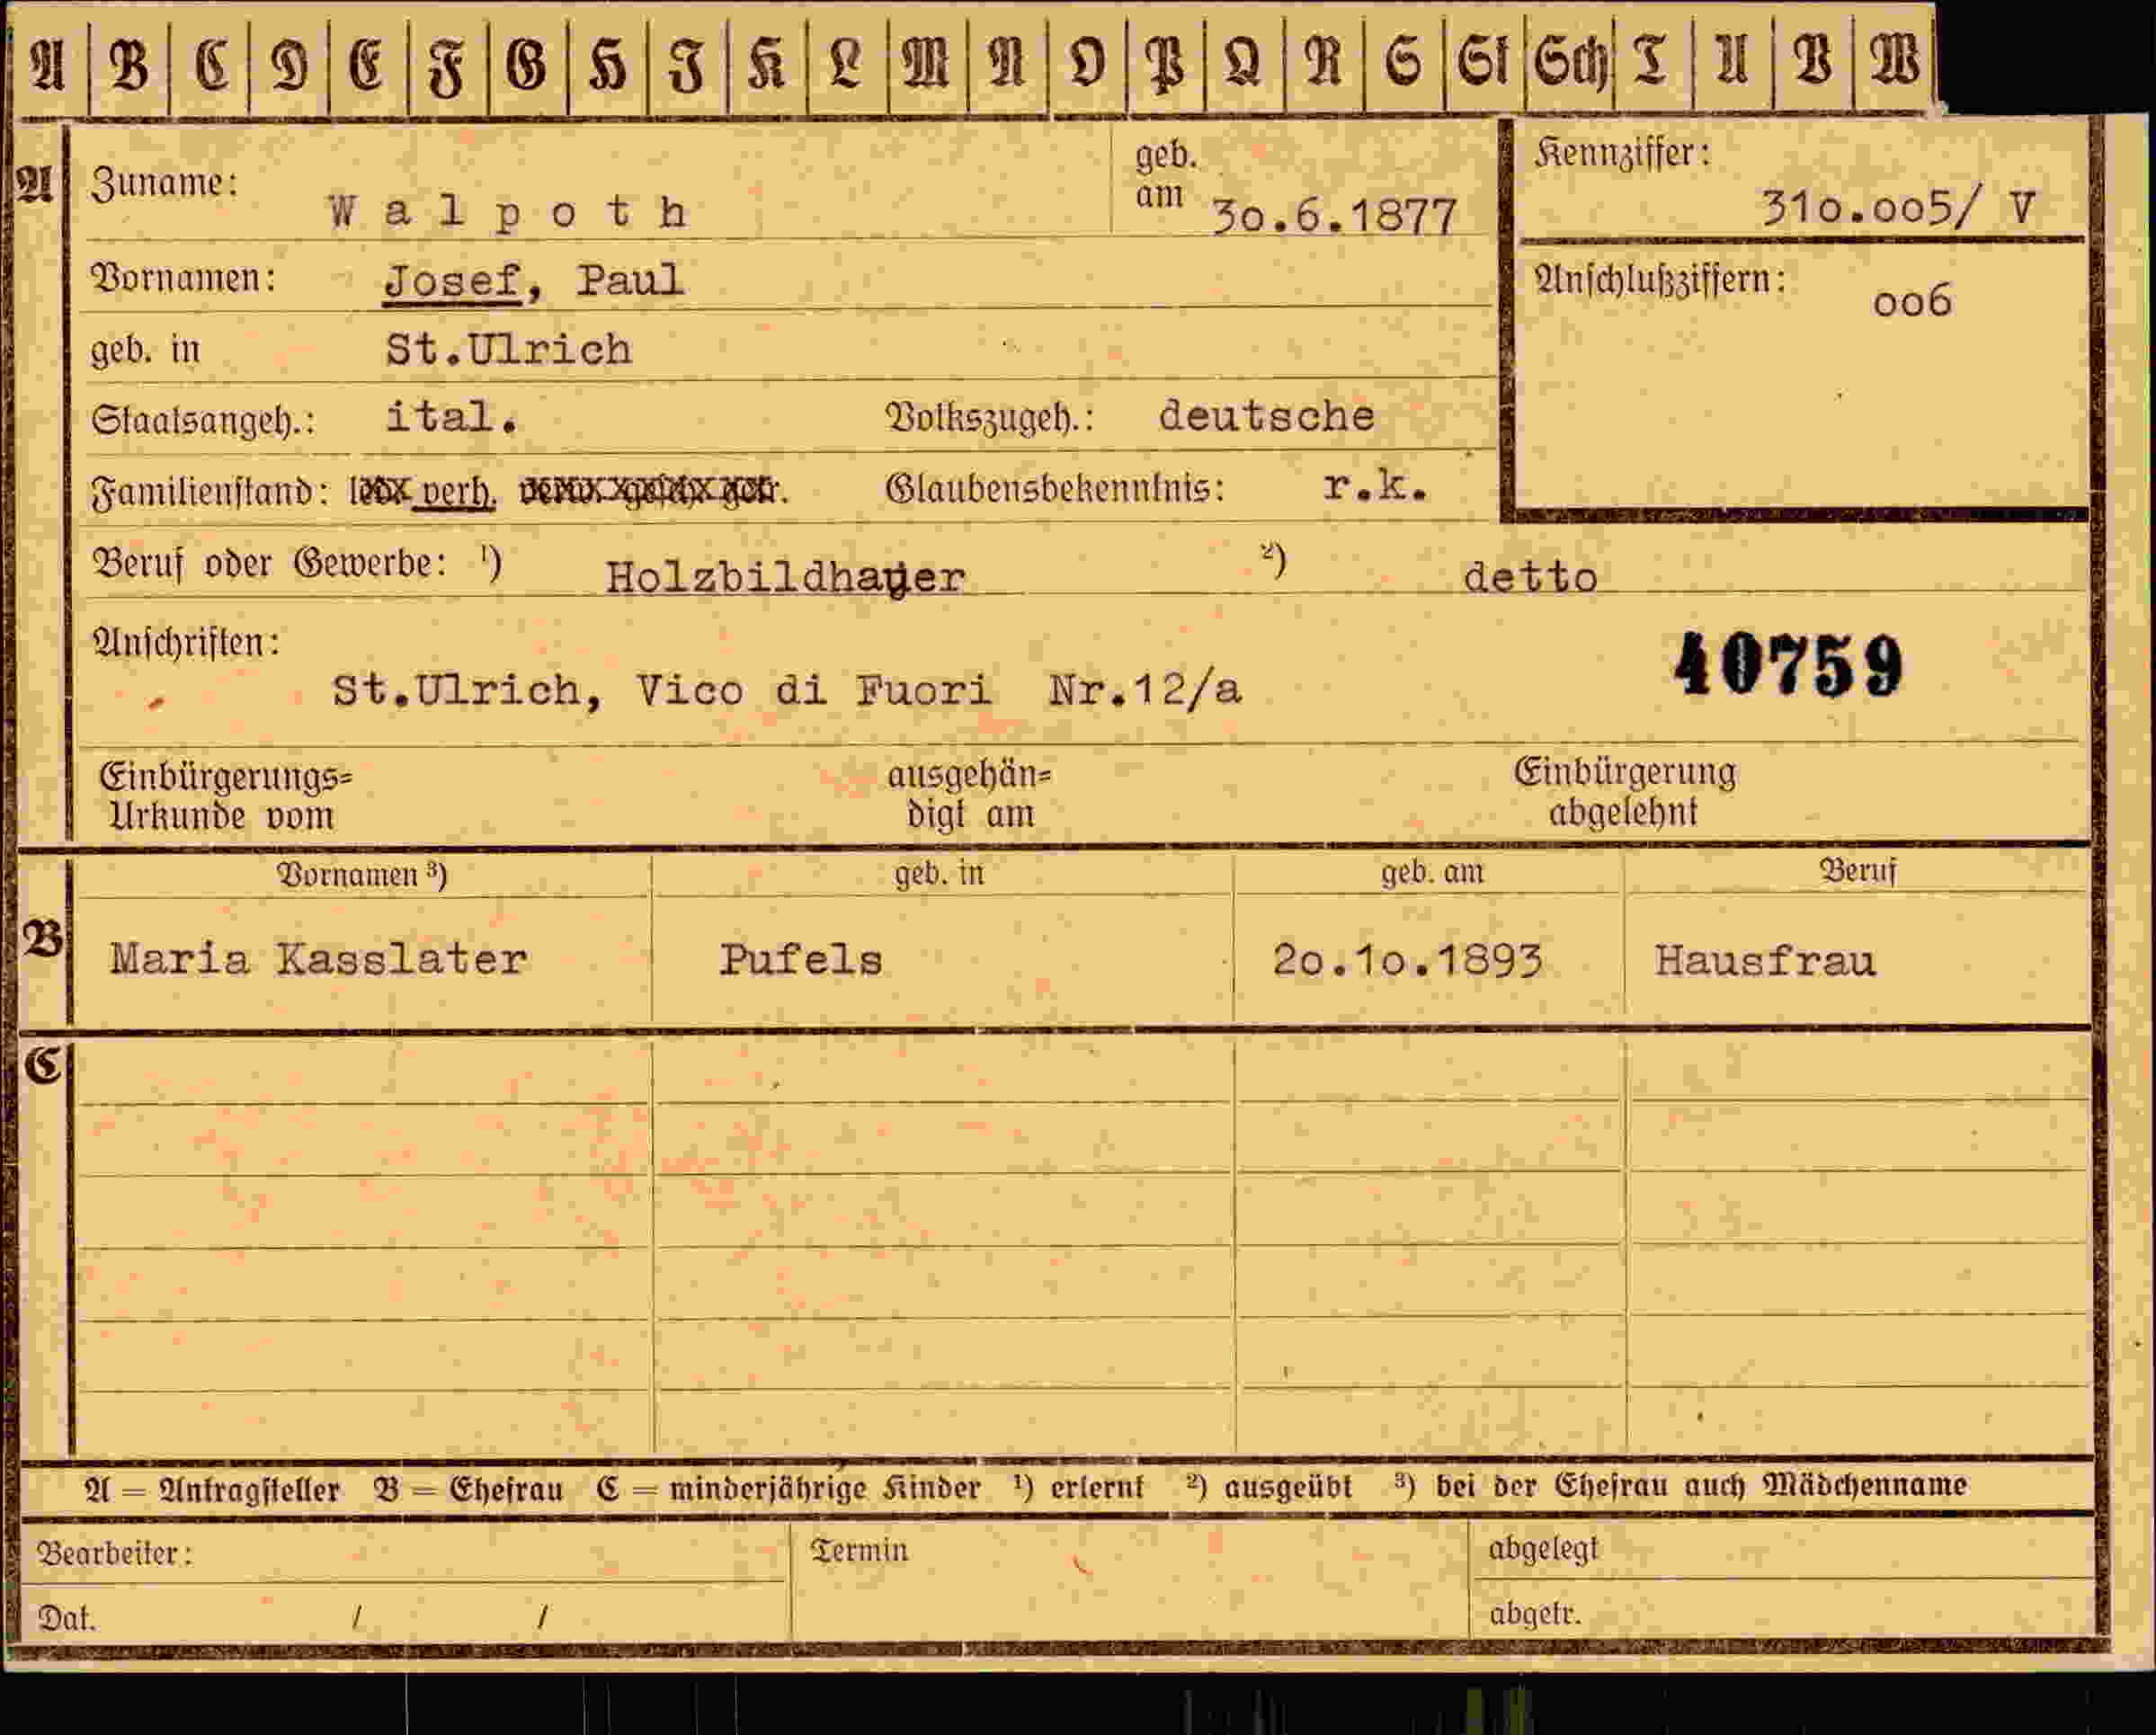 A B C D E F G H I K L M N O P Q R S St Sch T U V W
A Zuname: Walpoth geb. am 30.6.1877 Kennziffer: 310.005/ V
Vornamen: Josef, Paul Anschlußziffern: 006
geb. in St.Ulrich
Staatsangeh.: ital. Volkszugeh.: deutsche
Familienstand: verh. Glaubensbekenntnis: r.k.
Beruf oder Gewerbe: ¹) Holzbildhauer ²) detto
Anschriften: 40759
St.Ulrich, Vico di Fuori Nr.12/a
Einbürgerungs= ausgehän= Einbürgerung
Urkunde vom digt am abgelehnt
Vornamen ³) geb. in geb. am Beruf
B Maria Kasslater Pufels 20.10.1893 Hausfrau
C
A = Antragsteller B = Ehefrau C = minderjährige Kinder ¹) erlernt ²) ausgeübt ³) bei der Ehefrau auch Mädchenname
Bearbeiter: Termin abgelegt
Dat. / / abgetr.